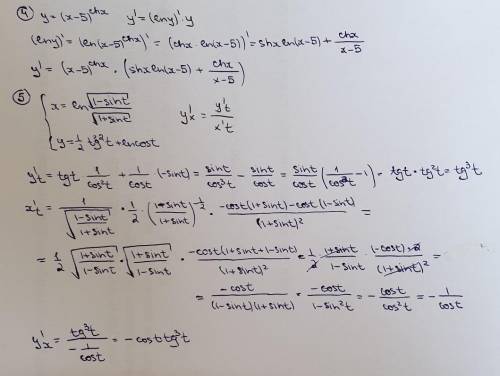 ④ y = (x-5)^chx    y' = (ln y)' · y
(ln y)' = (ln(x-5)^chx)' = (chx · ln(x-5))' = shx ln(x-5) + chx/(x-5)
y' = (x-5)^chx · (shx ln(x-5) + chx/(x-5))
⑤ { x = ln √(1-sint)/√(1+sint)    y'x = y't/x't
y = 1/2 tg²t + ln cost
y't = tgt · 1/cos²t + 1/cost · (-sint) = sint/cos³t - sint/cost = sint/cost (1/cos²t - 1) = tgt · tg²t = tg³t
x't = 1/√((1-sint)/(1+sint)) · 1/2 · ((1-sint)/(1+sint))^(-1/2) · (-cost(1+sint) - cost(1-sint))/(1+sint)² =
= 1/2 √((1+sint)/(1-sint)) · √((1+sint)/(1-sint)) · -cost(1+sint+1-sint)/(1+sint)² = 1/2 · (1+sint)/(1-sint) · (-cost)·2/(1+sint)² =
= -cost/((1-sint)(1+sint)) = -cost/(1-sin²t) = -cost/cos²t = -1/cost
y'x = tg³t/(-1/cost) = -cost tg³t